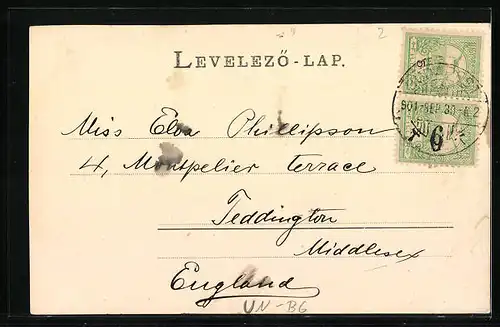 2
LEVELEZŐ-LAP.
901 SEP 30
6
Miss Elsa Phillipson
4, Montpelier Terrace
Teddington
Middlesex
England
UN-B6